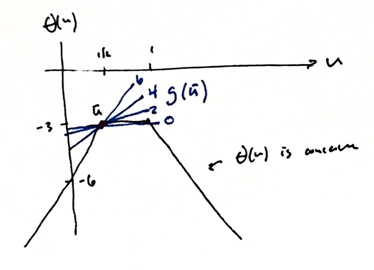 θ(u)
1/2 1
u
6
4 g(ū)
ū 2
-3 0
-6
θ(u) is concave